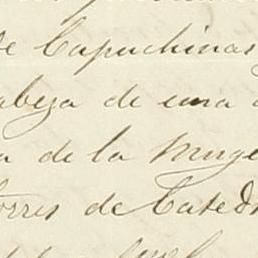 de Capuchinas
cabeza de una
a de la Muge
torres de Catedr